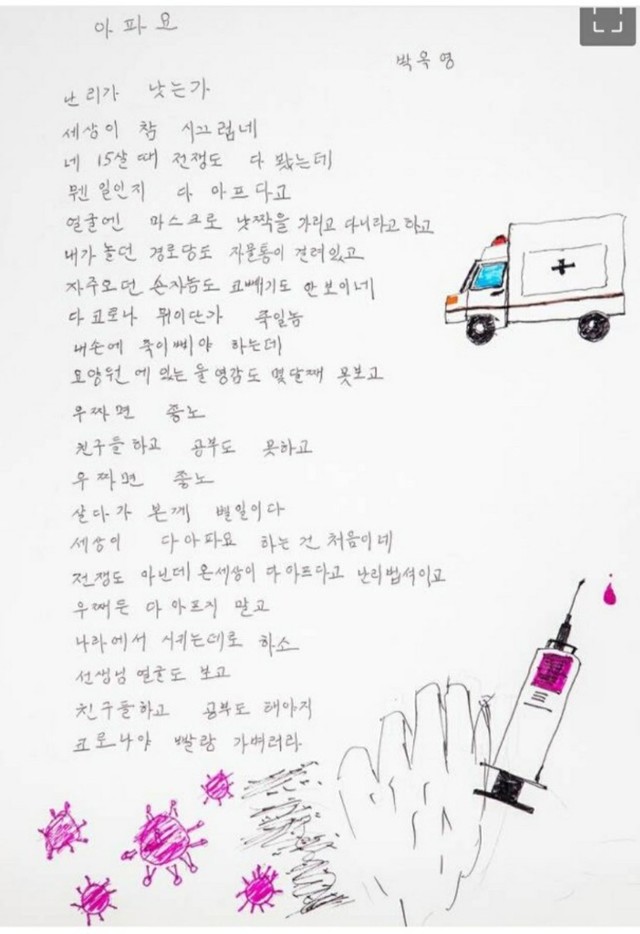 아파요
박옥영
난리가 낫는가
세상이 참 시끄럽네
네 15살 때 전쟁도 다 봤는데
뭔 일인지 다 아프다고
얼굴엔 마스크로 낯짝을 가리고 다니라고 하고
내가 놀던 경로당도 자물통이 걸려있고
자주오던 손자놈도 코빼기도 안 보이네
다 코로나 뭐이단가 죽일놈
내손에 죽이삐야 하는데
요양원 에 있는 울 영감도 몇달째 못보고
우짜면 좋노
친구들하고 공부도 못하고
우짜면 좋노
살다가 본께 별일이다
세상이 다아파요 하는건 처음이네
전쟁도 아닌데 온세상이 다아프다고 난리법석이고
우째든 다 아프지 말고
나라에서 시키는데로 하소
선생님 얼굴도 보고
친구들하고 공부도 해야지
코로나야 빨랑 가벼려라